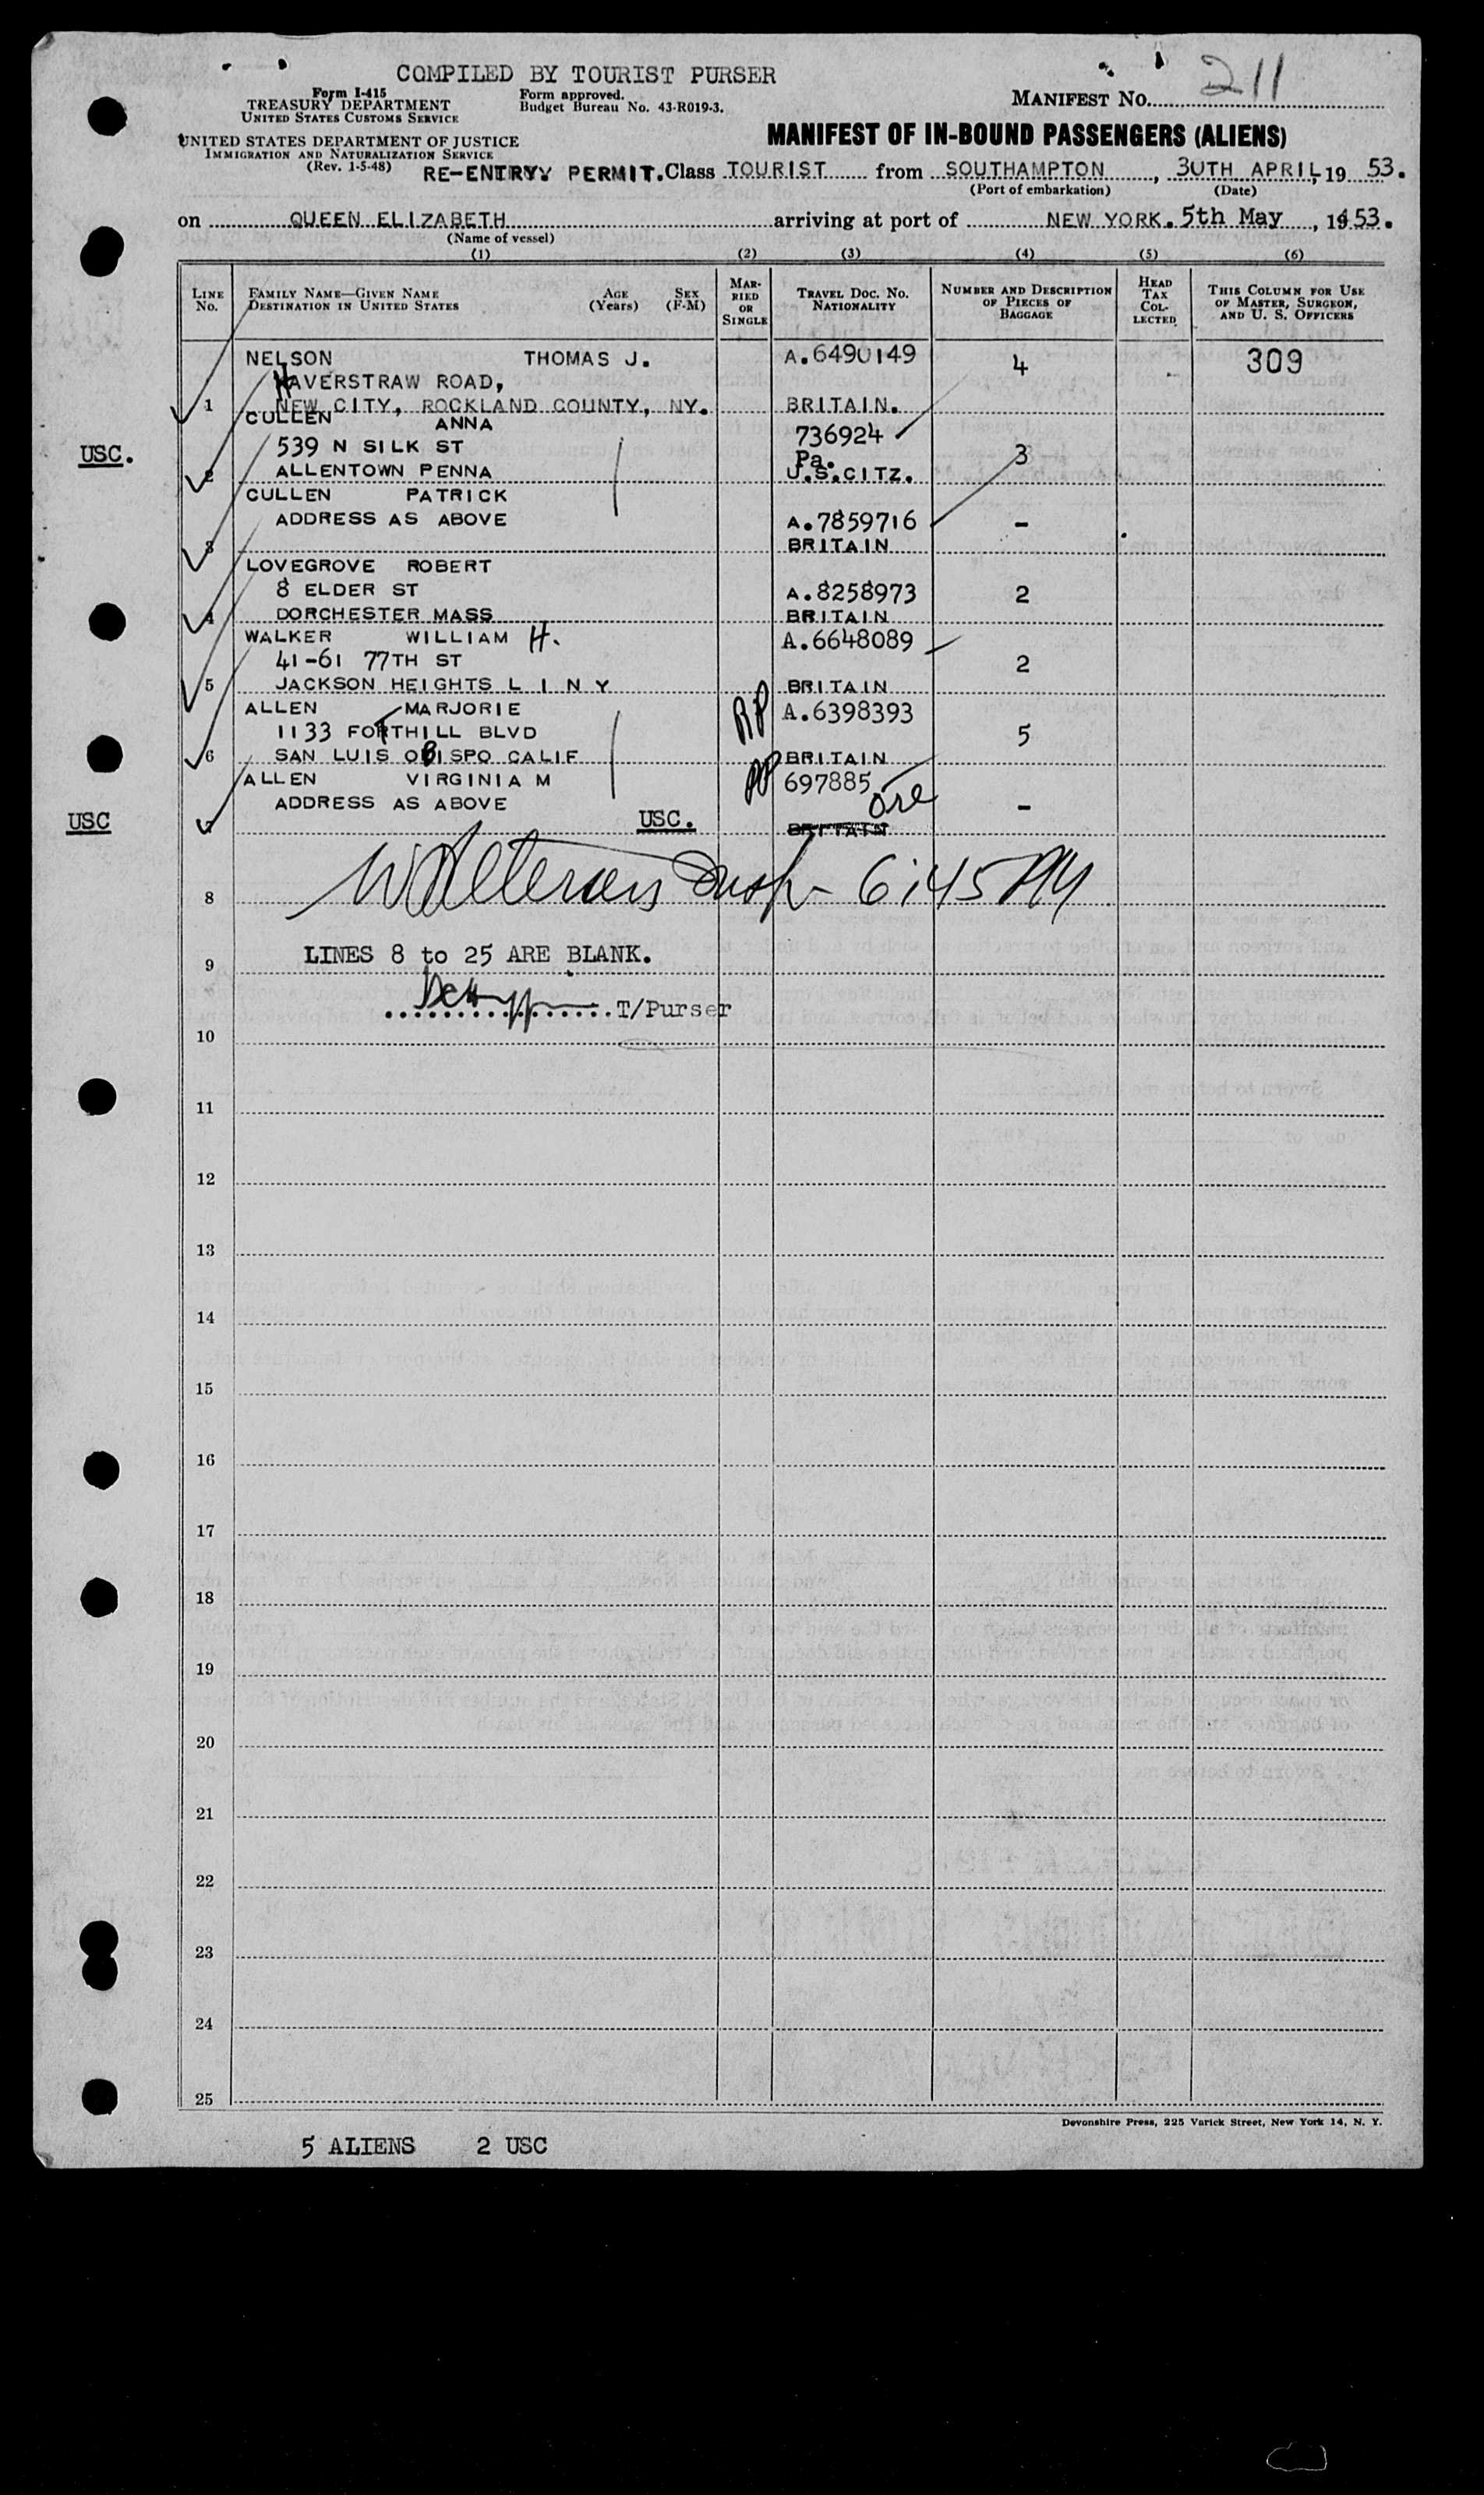 COMPILED BY TOURIST PURSER
Form I-415
TREASURY DEPARTMENT
UNITED STATES CUSTOMS SERVICE
Form approved.
Budget Bureau No. 43-R019-3.
MANIFEST NO. 211
UNITED STATES DEPARTMENT OF JUSTICE
IMMIGRATION AND NATURALIZATION SERVICE
(Rev. 1-5-48)
MANIFEST OF IN-BOUND PASSENGERS (ALIENS)
RE-ENTRY. PERMIT. Class TOURIST from SOUTHAMPTON, 30TH APRIL, 19 53.
(Port of embarkation) (Date)
on QUEEN ELIZABETH arriving at port of NEW YORK. 5th May, 1953.
(Name of vessel)
(1) (2) (3) (4) (5) (6)
LINE NO. FAMILY NAME—GIVEN NAME DESTINATION IN UNITED STATES AGE (Years) SEX (F-M) MARRIED OR SINGLE TRAVEL DOC. NO. NATIONALITY NUMBER AND DESCRIPTION OF PIECES OF BAGGAGE HEAD TAX COLLECTED THIS COLUMN FOR USE OF MASTER, SURGEON, AND U. S. OFFICERS
NELSON THOMAS J. A.6490149 4 309
HAVERSTRAW ROAD,
1 NEW CITY, ROCKLAND COUNTY, NY. BRITAIN.
CULLEN ANNA 736924
USC. 539 N SILK ST Pa. 3
2 ALLENTOWN PENNA U.S.CITZ.
CULLEN PATRICK
ADDRESS AS ABOVE A.7859716 -
3 BRITAIN
LOVEGROVE ROBERT
8 ELDER ST A.8258973 2
4 DORCHESTER MASS BRITAIN
WALKER WILLIAM H. A.6648089
41-61 77TH ST 2
5 JACKSON HEIGHTS L I N Y BRITAIN
ALLEN MARJORIE A.6398393
1133 FORTHILL BLVD 5
6 SAN LUIS OBISPO CALIF BRITAIN
ALLEN VIRGINIA M 697885
ADDRESS AS ABOVE -
USC 7 USC. BRITAIN
8 6:45 PM
9 LINES 8 to 25 ARE BLANK.
T/Purser
10
11
12
13
14
15
16
17
18
19
20
21
22
23
24
25
Devonshire Press, 225 Varick Street, New York 14, N. Y.
5 ALIENS 2 USC